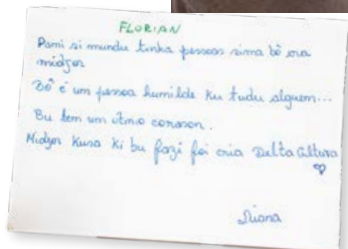 FLORIAN
Pami si mundu tinha pessoas sima bô era
midjor
Bô é um pessoa humilde ku tudu alguem...
Bu tem um ótmo corason.
Midjor kusa ki bu fazi foi cria Delta Cultura
Diana